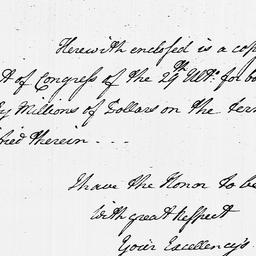 Herewith enclosed is a cop
t of Congress of the 29th Ulto: for bo
ty Millions of Dollars on the ter
bed therein - - -
I have the Honor to be
With great Respect
Your Excellency's